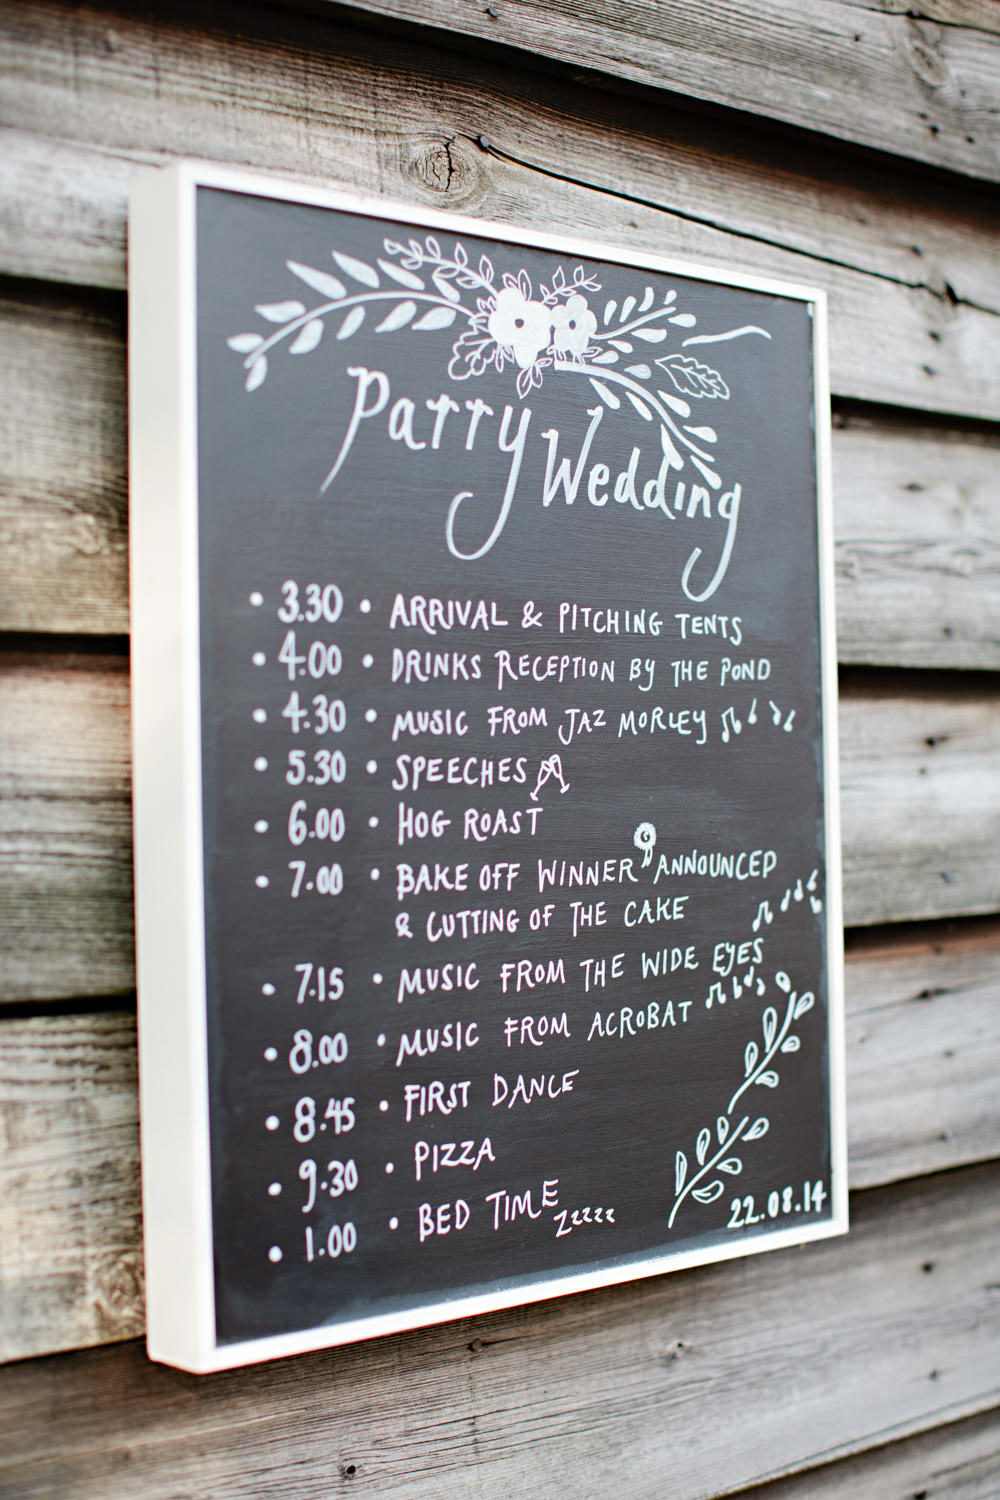 Parry Wedding
• 3.30 • ARRIVAL & PITCHING TENTS
• 4.00 • DRINKS RECEPTION BY THE POND
• 4.30 • MUSIC FROM JAZ MORLEY
• 5.30 • SPEECHES
• 6.00 • HOG ROAST
• 7.00 • BAKE OFF WINNER ANNOUNCED
& CUTTING OF THE CAKE
• 7.15 • MUSIC FROM THE WIDE EYES
• 8.00 • MUSIC FROM ACROBAT
• 8.45 • FIRST DANCE
• 9.30 • PIZZA
• 1.00 • BED TIME zzzzz
22.08.14